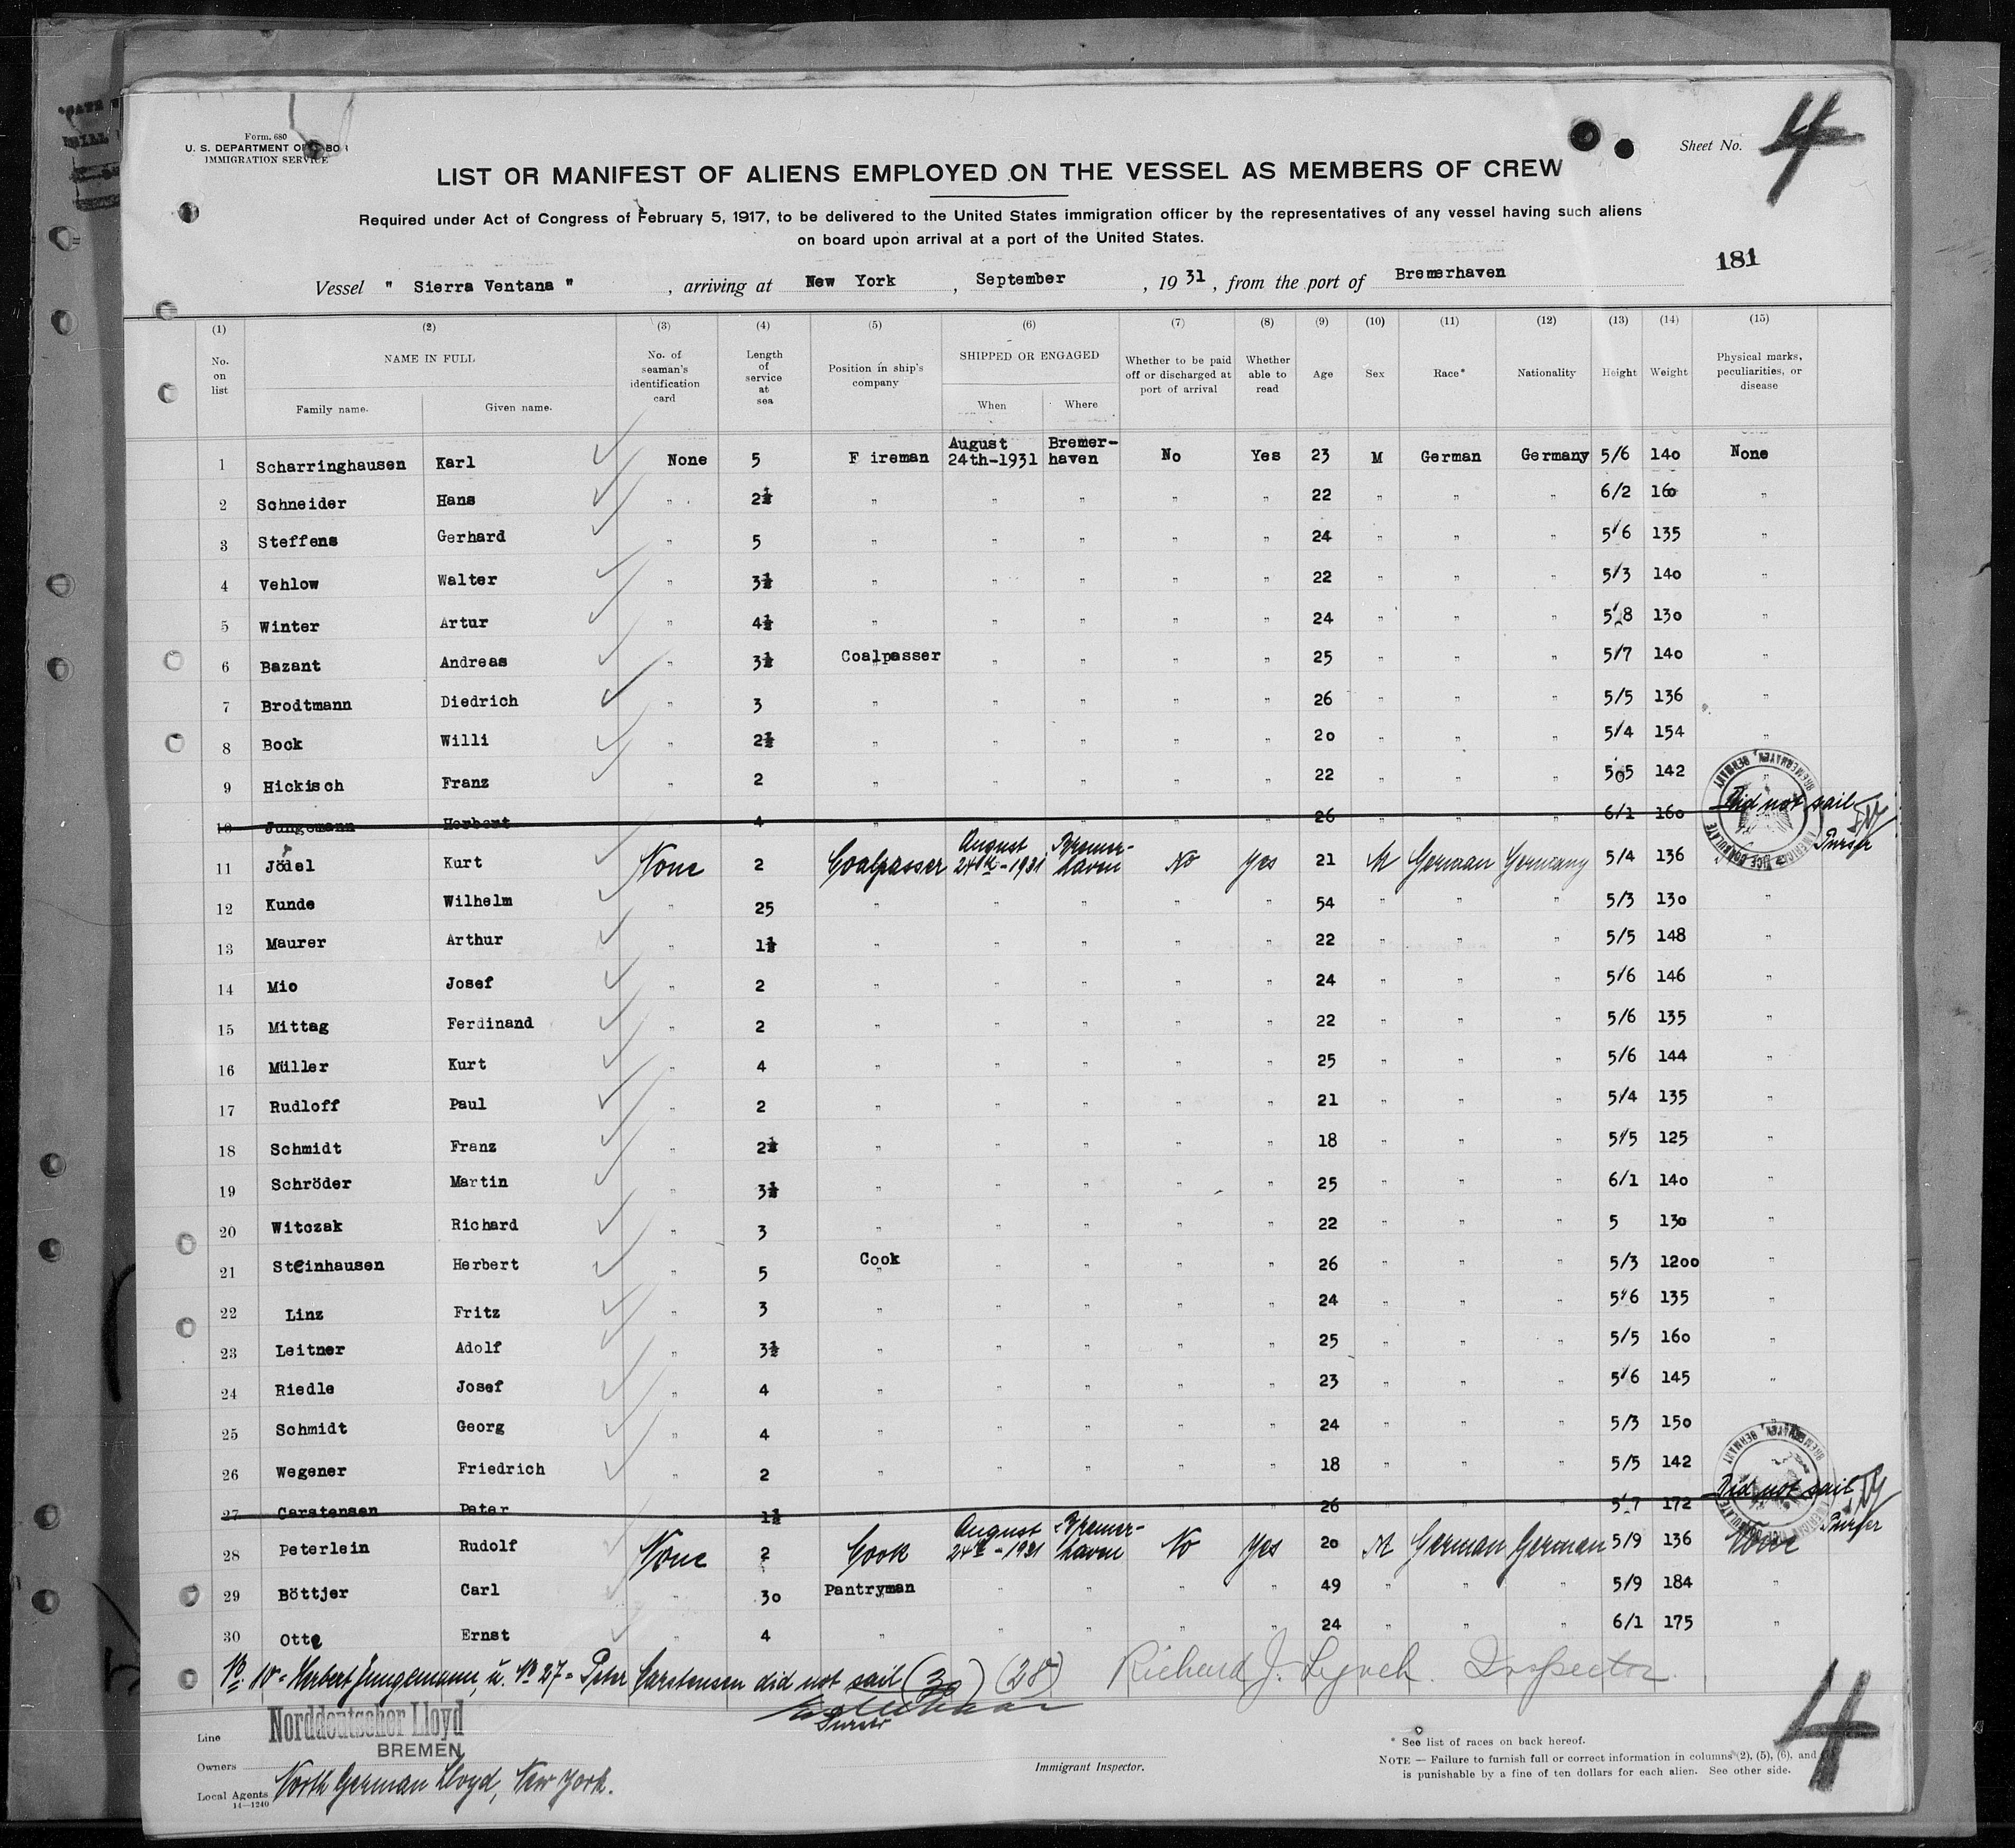 Form. 680
U. S. DEPARTMENT OF LABOR
IMMIGRATION SERVICE
Sheet No. 4
LIST OR MANIFEST OF ALIENS EMPLOYED ON THE VESSEL AS MEMBERS OF CREW
Required under Act of Congress of February 5, 1917, to be delivered to the United States immigration officer by the representatives of any vessel having such aliens
on board upon arrival at a port of the United States.
181
Vessel " Sierra Ventana " , arriving at New York , September , 19 31 , from the port of Bremerhaven
(1) (2) (3) (4) (5) (6) (7) (8) (9) (10) (11) (12) (13) (14) (15)
No. on list NAME IN FULL Family name. Given name. No. of seaman's identification card Length of service at sea Position in ship's company SHIPPED OR ENGAGED When Where Whether to be paid off or discharged at port of arrival Whether able to read Age Sex Race* Nationality Height Weight Physical marks, peculiarities, or disease
1 Scharringhausen Karl None 5 Fireman August 24th-1931 Bremer-haven No Yes 23 M German Germany 5/6 140 None
2 Schneider Hans " 2½ " " " " " 22 " " " 6/2 160 "
3 Steffens Gerhard " 5 " " " " " 24 " " " 5/6 135 "
4 Vehlow Walter " 3½ " " " " " 22 " " " 5/3 140 "
5 Winter Artur " 4½ " " " " " 24 " " " 5/8 130 "
6 Bazant Andreas " 3½ Coalpasser " " " " 25 " " " 5/7 140 "
7 Brodtmann Diedrich " 3 " " " " " 26 " " " 5/5 136 "
8 Bock Willi " 2½ " " " " " 20 " " " 5/4 154 "
9 Hickisch Franz " 2 " " " " " 22 " " " 5/5 142 "
10 Jungemann Herbert " 4 " " " " " 26 " " " 6/1 160 Did not sail
Purser
11 Jödel Kurt None 2 Coalpasser August 24th-1931 Bremer-haven No Yes 21 M German Germany 5/4 136
12 Kunde Wilhelm " 25 " " " " " 54 " " " 5/3 130 "
13 Maurer Arthur " 1½ " " " " " 22 " " " 5/5 148 "
14 Mio Josef " 2 " " " " " 24 " " " 5/6 146 "
15 Mittag Ferdinand " 2 " " " " " 22 " " " 5/6 135 "
16 Müller Kurt " 4 " " " " " 25 " " " 5/6 144 "
17 Rudloff Paul " 2 " " " " " 21 " " " 5/4 135 "
18 Schmidt Franz " 2½ " " " " " 18 " " " 5/5 125 "
19 Schröder Martin " 3½ " " " " " 25 " " " 6/1 140 "
20 Witczak Richard " 3 " " " " " 22 " " " 5 130 "
21 Steinhausen Herbert " 5 Cook " " " " 26 " " " 5/3 1200 "
22 Linz Fritz " 3 " " " " " 24 " " " 5/6 135 "
23 Leitner Adolf " 3½ " " " " " 25 " " " 5/5 160 "
24 Riedle Josef " 4 " " " " " 23 " " " 5/6 145 "
25 Schmidt Georg " 4 " " " " " 24 " " " 5/3 150 "
26 Wegener Friedrich " 2 " " " " " 18 " " " 5/5 142
27 Carstensen Peter 1½ 26 " " " 5/7 172 Did not sail
Purser
28 Peterlein Rudolf None 2 Cook August 24th-1931 Bremer-haven No Yes 20 M German German 5/9 136 None
29 Böttjer Carl " 30 Pantryman " " " " 49 " " " 5/9 184 "
30 Otte Ernst " 4 " " " " " 24 " " " 6/1 175 "
No. 10 = Herbert Jungemann, u. No 27 = Peter Carstensen did not sail (30) (28) Richard J. Lynch. Inspector.
Purser
Line Norddeutscher Lloyd
BREMEN
Owners
Immigrant Inspector.
Local Agents North German Lloyd, New York.
14—1240
* See list of races on back hereof.
NOTE — Failure to furnish full or correct information in columns (2), (5), (6), and
is punishable by a fine of ten dollars for each alien. See other side.
4